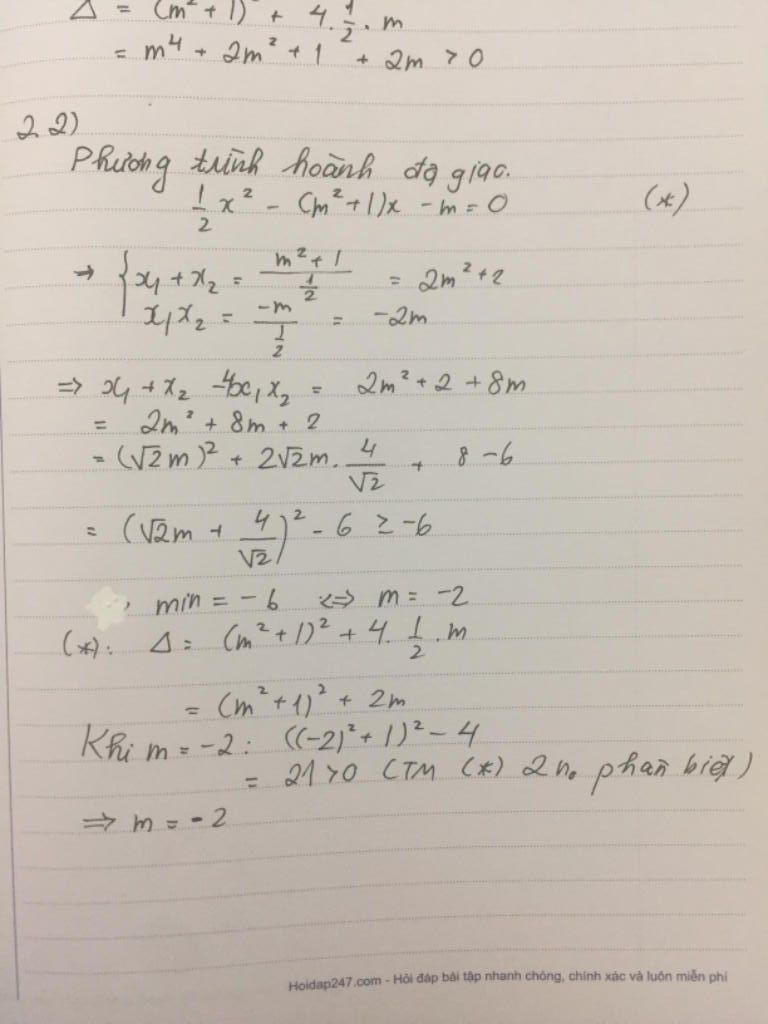 Δ = (m² + 1)² + 4.1/2.m
= m⁴ + 2m² + 1 + 2m > 0
2.2)
Phương trình hoành độ giao.
1/2 x² - (m² + 1)x - m = 0 (*)
→ { x₁ + x₂ = (m² + 1)/(1/2) = 2m² + 2
x₁x₂ = -m/(1/2) = -2m
⇒ x₁ + x₂ - 4x₁x₂ = 2m² + 2 + 8m
= 2m² + 8m + 2
= (√2m)² + 2√2m.4/√2 + 8 - 6
= (√2m + 4/√2)² - 6 ≥ -6
min = -6 ⇔ m = -2
(*): Δ = (m² + 1)² + 4.1/2.m
= (m² + 1)² + 2m
Khi m = -2: ((-2)² + 1)² - 4
= 21 > 0 (TM (*) 2 n₀ phân biệt)
⇒ m = -2
Hoidap247.com - Hỏi đáp bài tập nhanh chóng, chính xác và luôn miễn phí